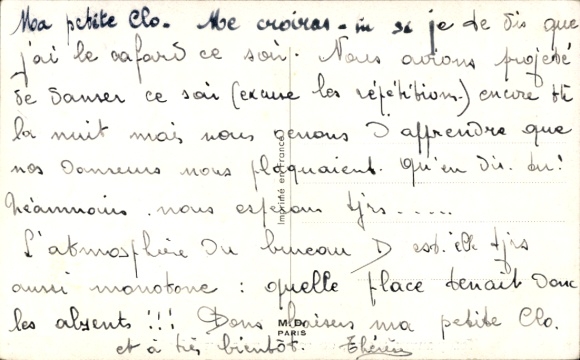 Ma petite Clo. Me croiras-tu si je te dis que
j'ai le cafard ce soir. Nous avions projeté
de danser ce soir (excuse les répétitions) encore tte
la nuit mais nous venons d'apprendre que
nos danseurs nous plaquaient. Qu'en dis-tu!
Néanmoins, nous espérons tjrs.....
L'atmosphère du bureau est-elle tjrs
aussi monotone : quelle place tenait donc
les absents !!! Bons baisers ma petite Clo.
et à très bientôt. Thérèse
Imprimé en France
M.D.
PARIS